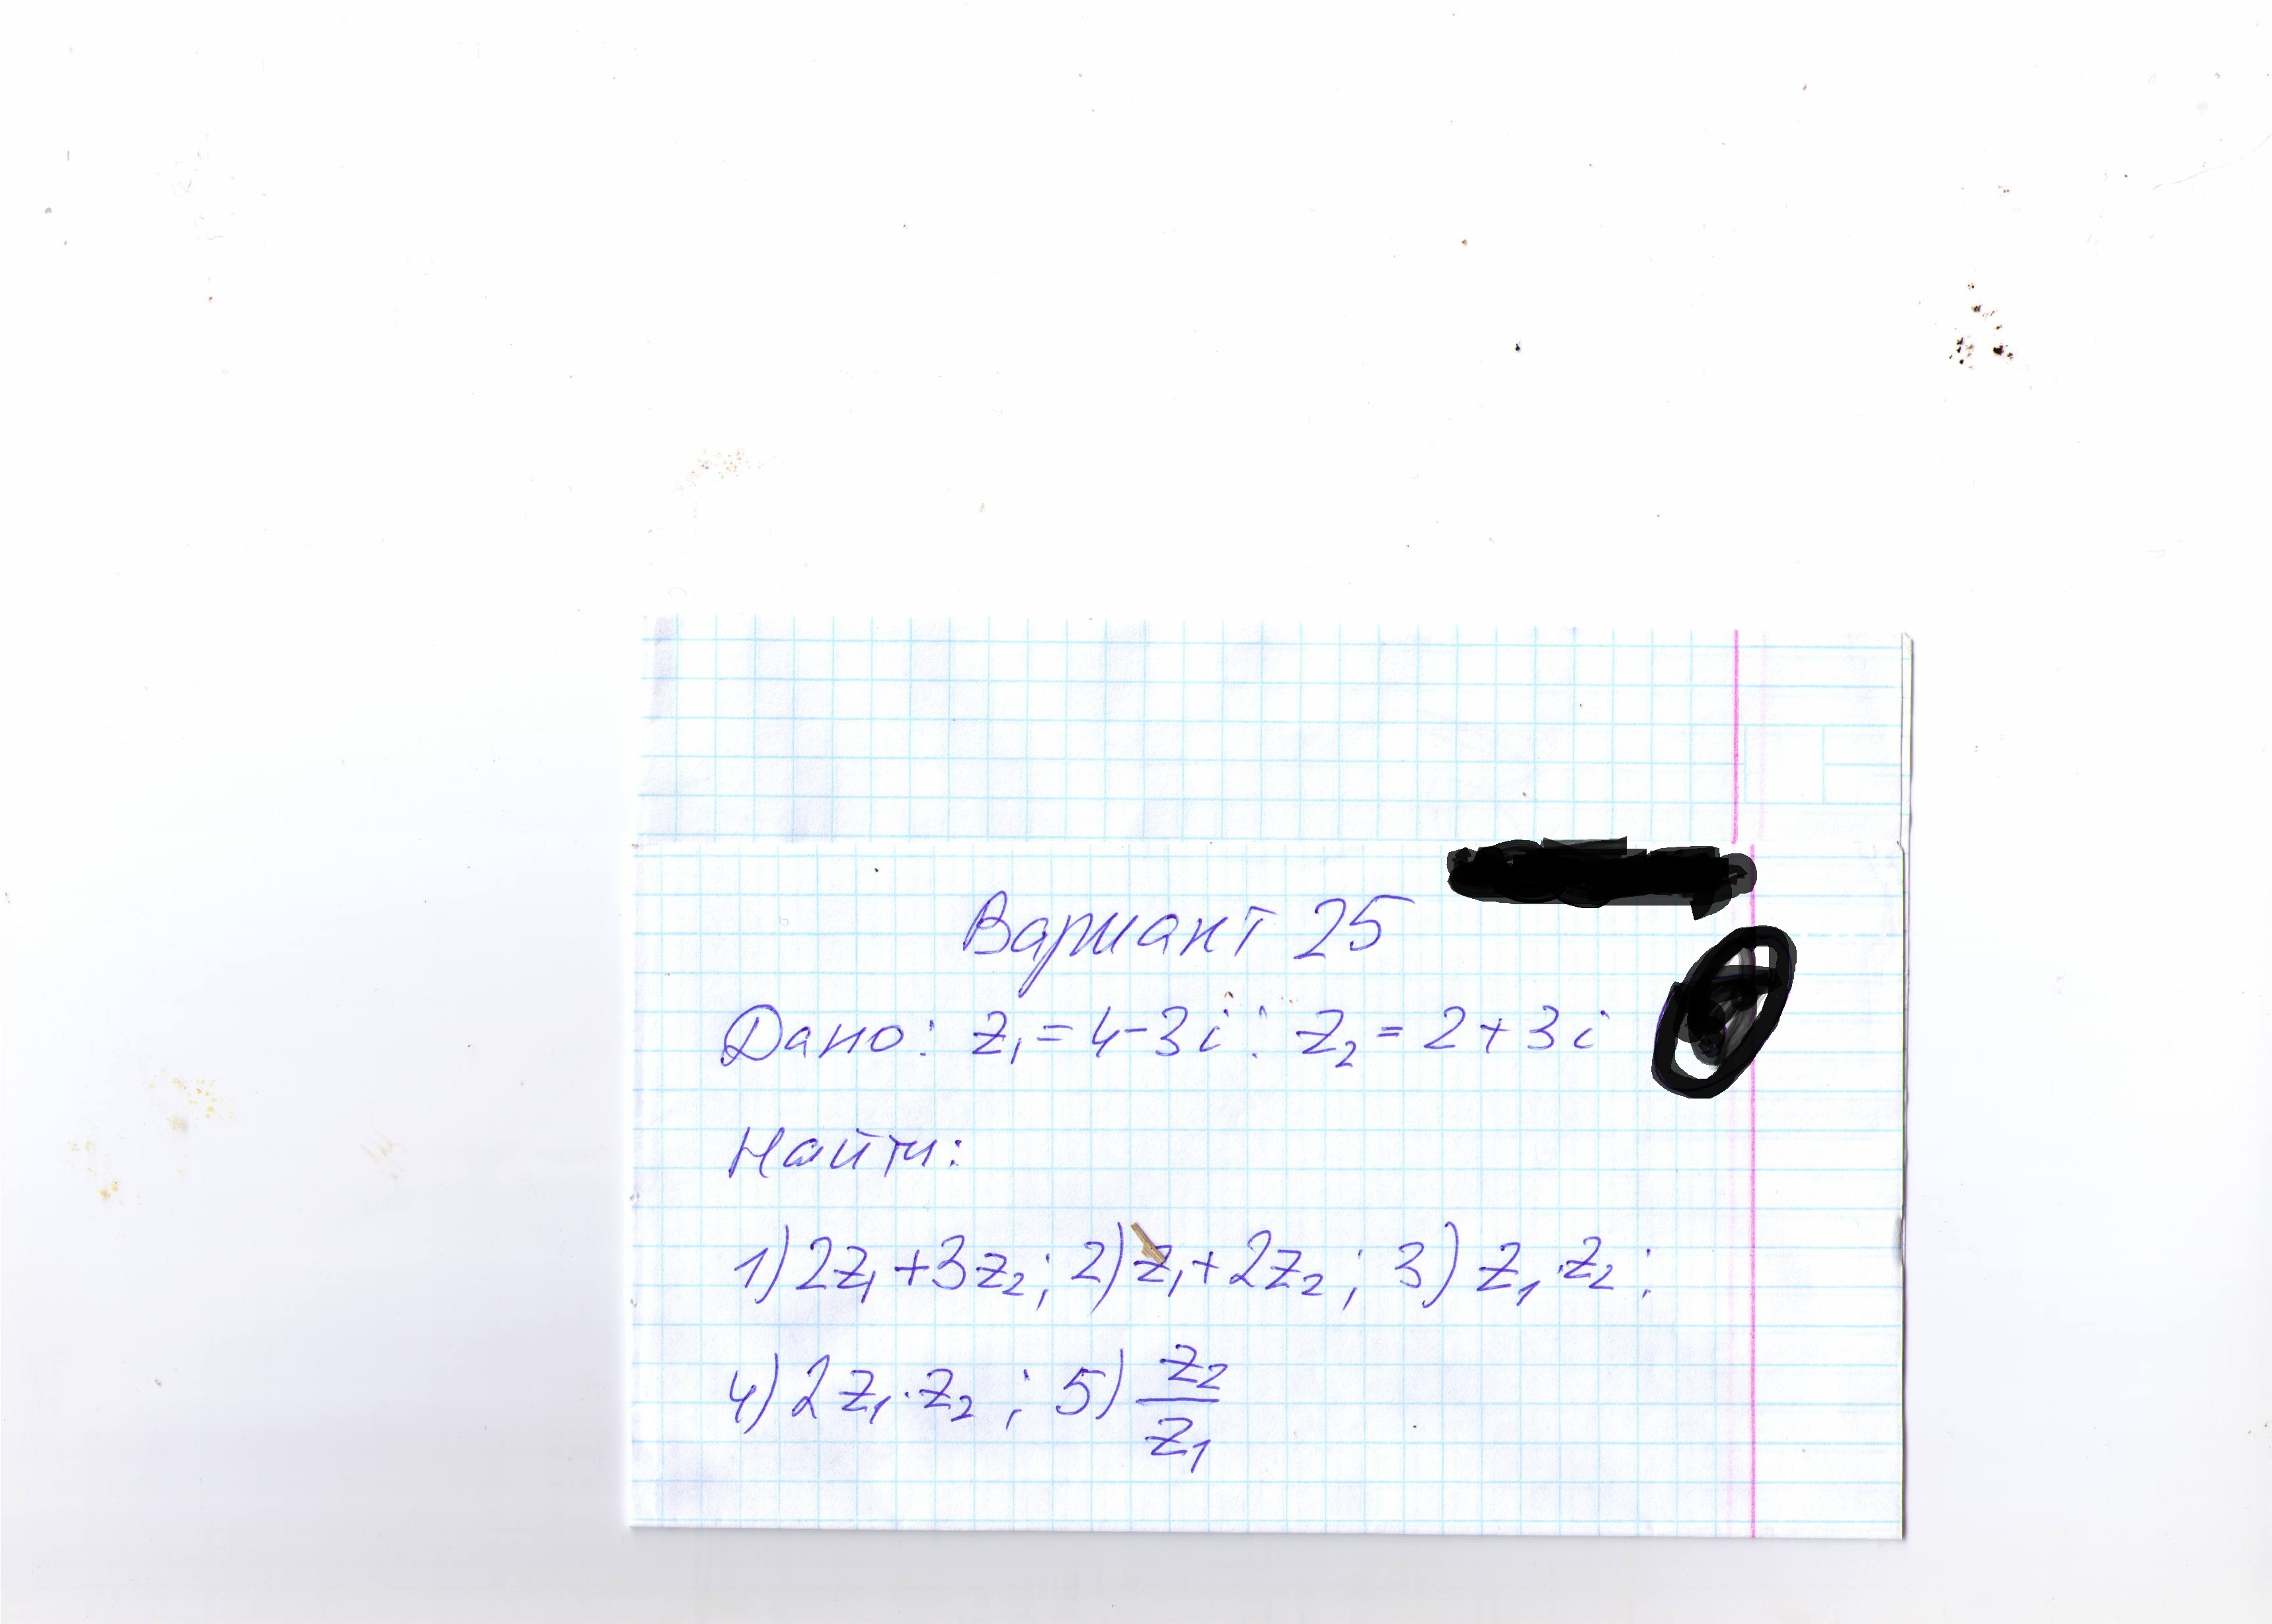 Вариант 25
Дано: z₁ = 4-3i; z₂ = 2+3i
Найти:
1) 2z₁+3z₂; 2) z₁+2z₂; 3) z₁·z₂;
4) 2z₁·z₂; 5) z₂/z₁